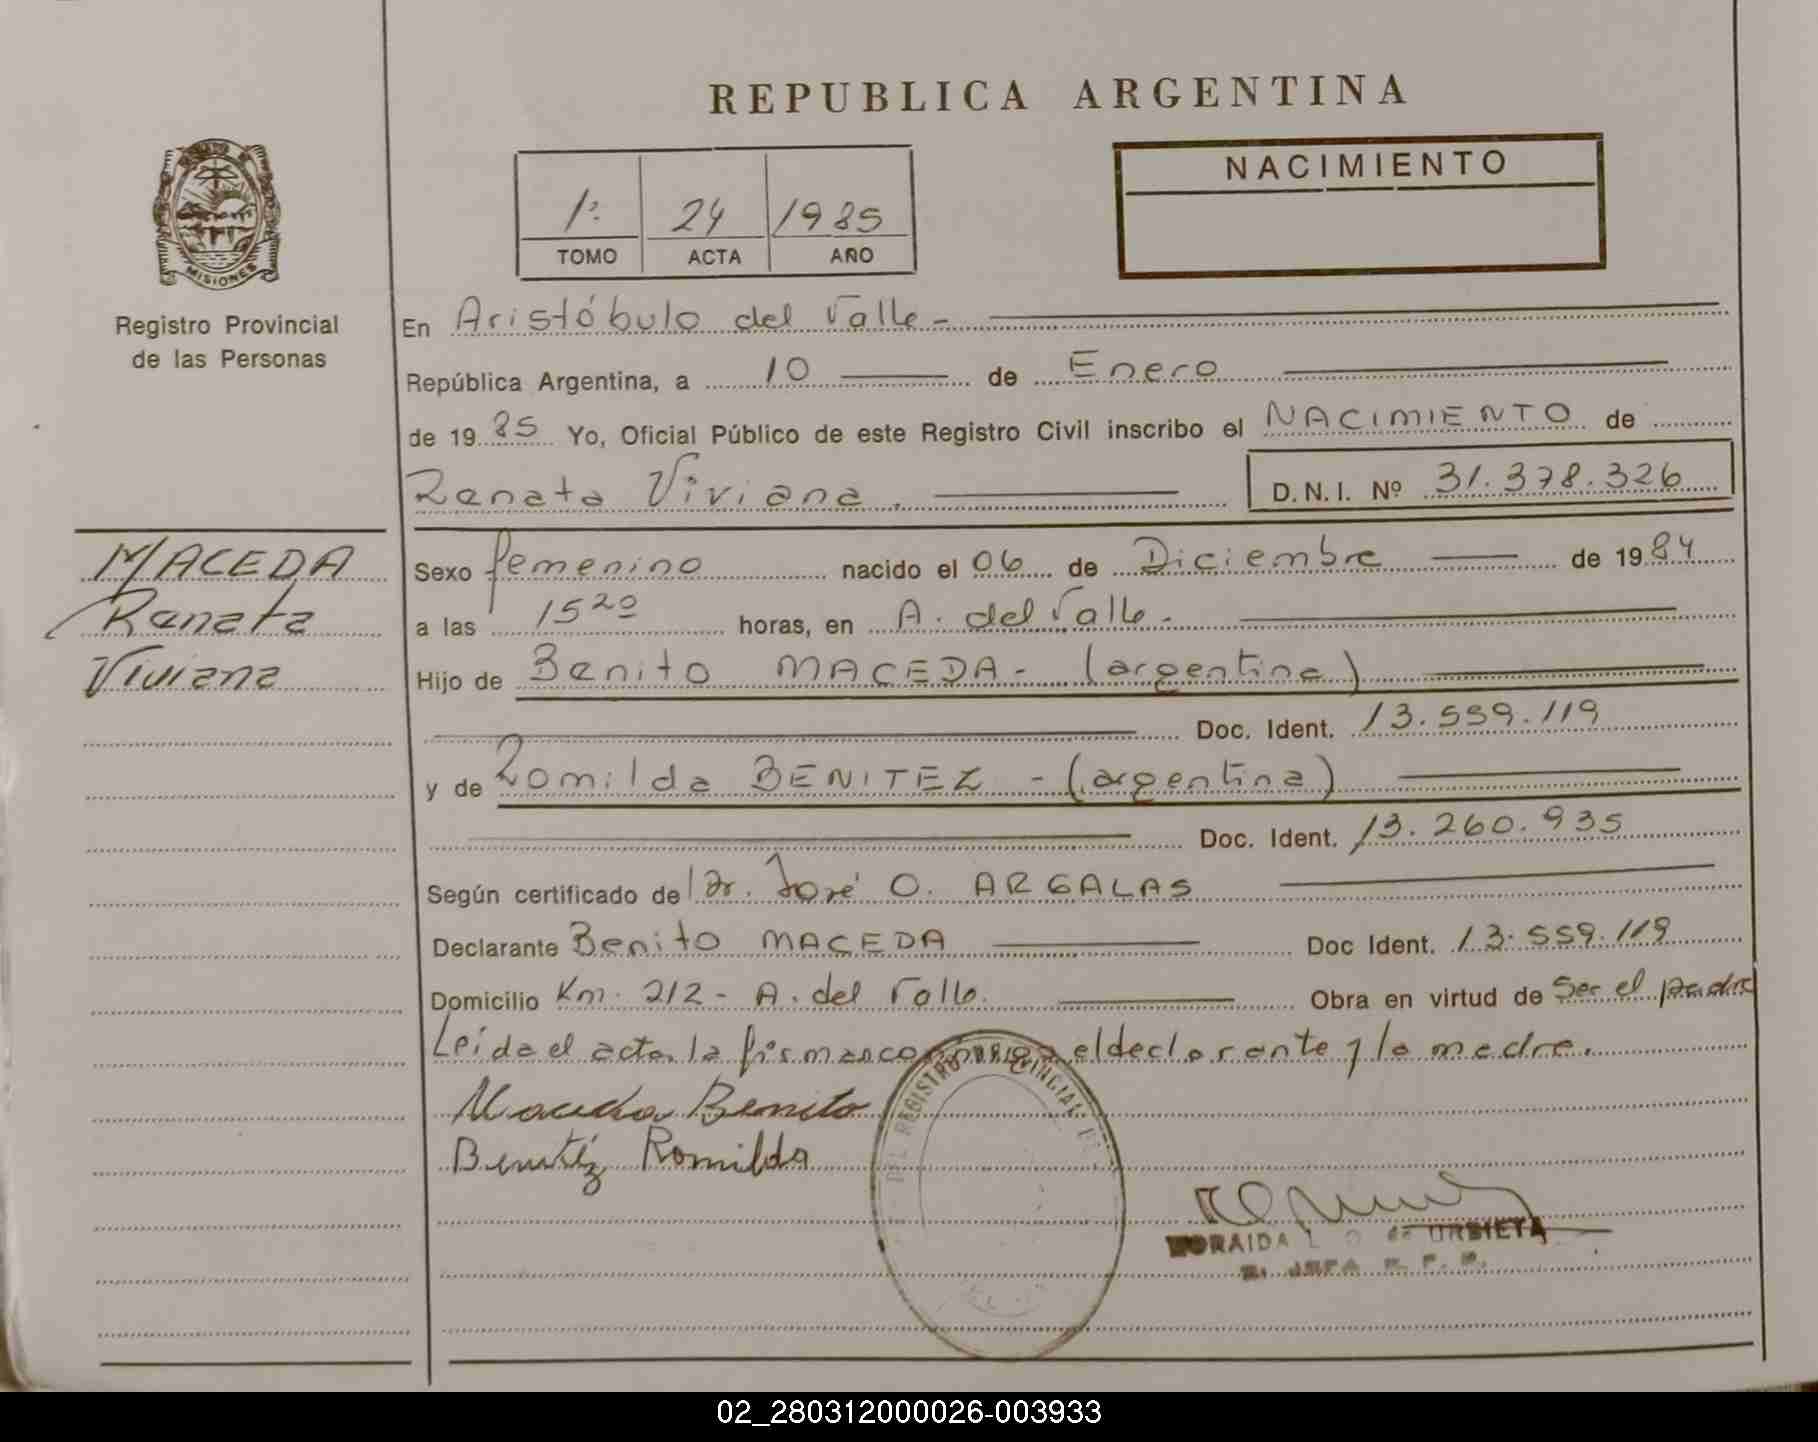 REPUBLICA ARGENTINA
NACIMIENTO
1º 24 1985
TOMO ACTA AÑO
MISIONES
Registro Provincial
de las Personas
En Aristóbulo del Valle -
República Argentina, a 10 de Enero
de 1985 Yo, Oficial Público de este Registro Civil inscribo el NACIMIENTO de
Renata Viviana. D.N.I. Nº 31.378.326
MACEDA
Renata
Viviana
Sexo femenino nacido el 06 de Diciembre de 1984
a las 15 20 horas, en A. del Valle -
Hijo de Benito MACEDA - (argentina)
Doc. Ident. 13.559.119
y de Romilda BENITEZ - (argentina)
Doc. Ident. 13.260.935
Según certificado de Dr. José O. ARGALAS
Declarante Benito MACEDA Doc Ident. 13.559.119
Domicilio Km. 212 - A. del Valle. Obra en virtud de Ser el padre
Leída el acta la firman conmigo el declarante y la madre.
Maceda Benito
Benitéz Romilda
DEL REGISTRO PROVINCIAL
URBIETA
JEFA
02_280312000026-003933